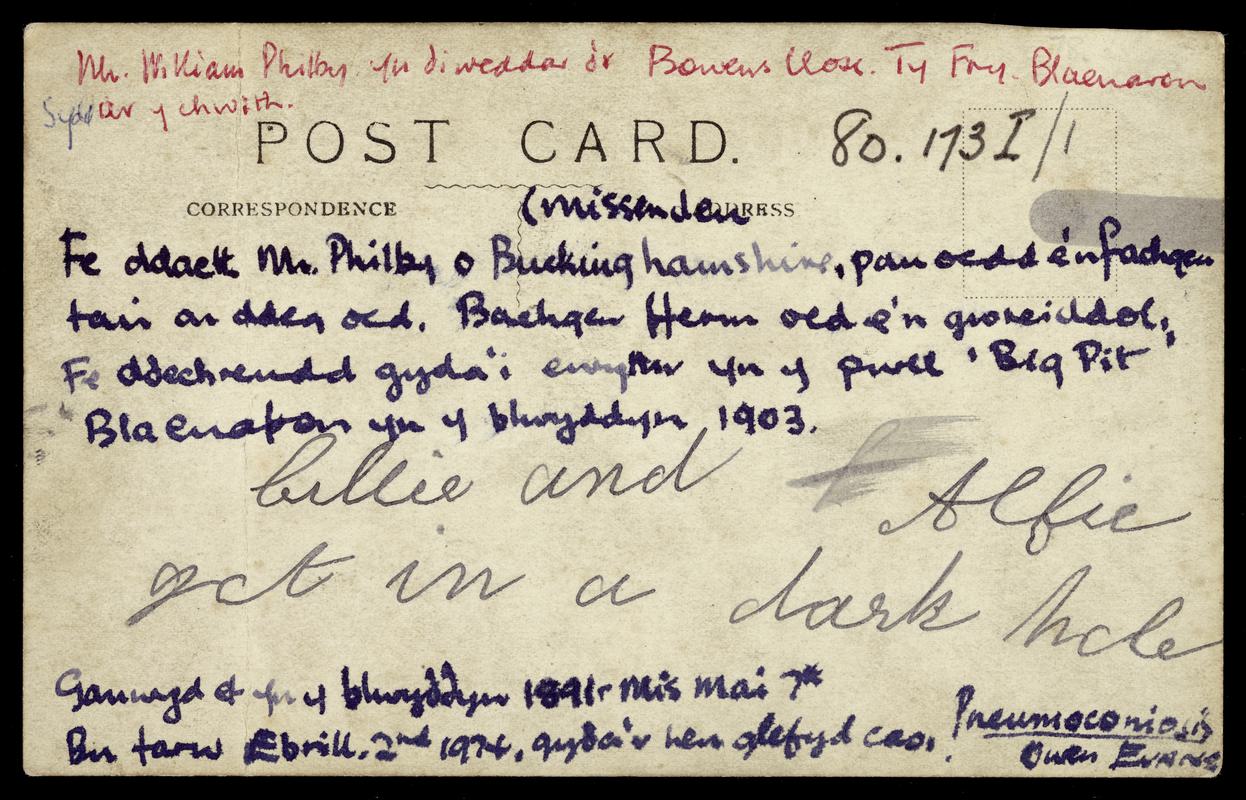 Mr. William Philby yn diweddar o'r Bowens Close. Ty Fry. Blaenavon
Sydd ar y chwith.
POST CARD.
80.173 I/1
CORRESPONDENCE
ADDRESS
(Missenden
Fe ddaeth Mr. Philby o Buckinghamshire, pan oedd e'n fachgen
tair ar ddeg oed. Bachgen fferm oedd e'n gwreiddol,
Fe ddechreudd gyda'i ewythr yn y pwll 'Big Pit'
Blaenafon yn y blwyddyn 1903.
billie and Alfie
get in a dark hole
Ganwyd ef yn y blwyddyn 1891 Mis Mai 7th
Bu farw Ebrill. 2nd 1974, gyda'r hen glefyd cas, Pneumoconiosis
Owen Evans